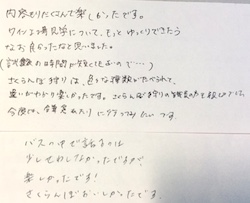 内容もりだくさんで楽しかったです。
ワイン工場見学について、もっとゆっくりできたら
なお良かったなと思いました。
(試飲の時間が短くて…)
さくらんぼ狩りは、色々な種類がたべられて、
違いがわかり楽しかったです。さくらんぼ狩りの
今度は、 に行ってみたいです。
バスの中で話すのは
少しせわしなかったですが、
楽しかったです!
さくらんぼおいしかったです。